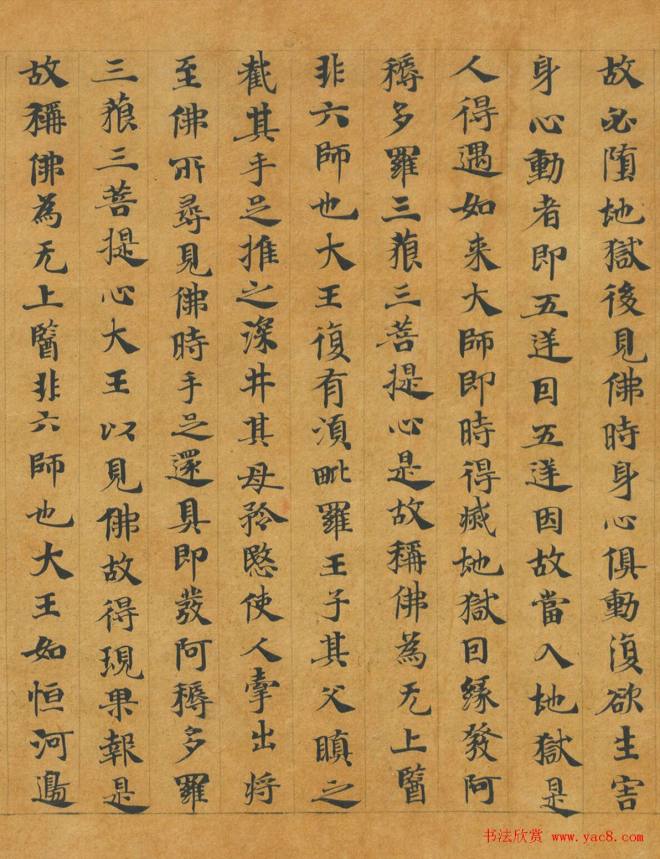 故必堕地獄後見佛時身心俱動復欲生害
身心動者即五逆因五逆因故當入地獄是
人得遇如来大師即時得滅地獄因緣發阿
耨多羅三藐三菩提心是故稱佛為无上醫
非六師也大王復有須毗羅王子其父瞋之
截其手足推之深井其母矜愍使人牽出將
至佛所尋見佛時手足還具即發阿耨多羅
三藐三菩提心大王以見佛故得現果報是
故稱佛為无上醫非六師也大王如恒河邊
书法欣赏 www.yac8.com